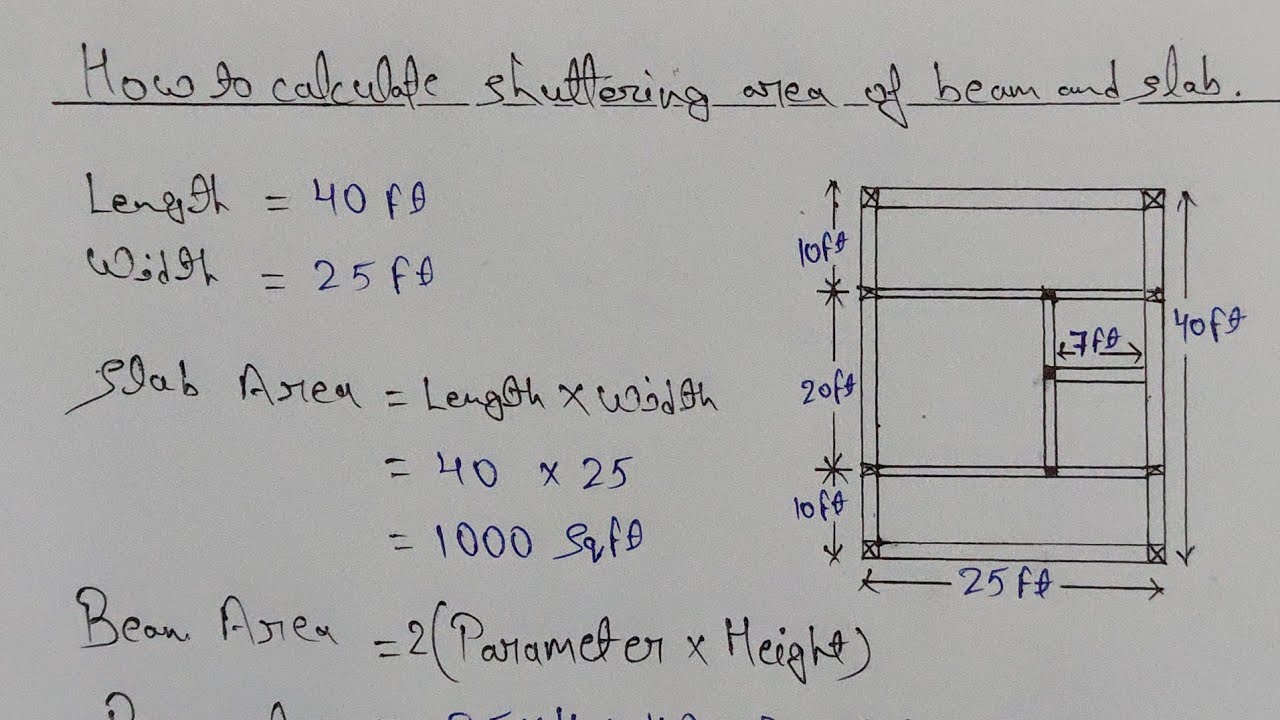 How to calculate shuttering area of beam and slab.
Length = 40 ft
Width = 25 ft
Slab Area = Length × Width
= 40 × 25
= 1000 Sqft
Beam Area = 2(Parameter × Height)
10ft
20ft
10ft
7ft
40ft
25ft